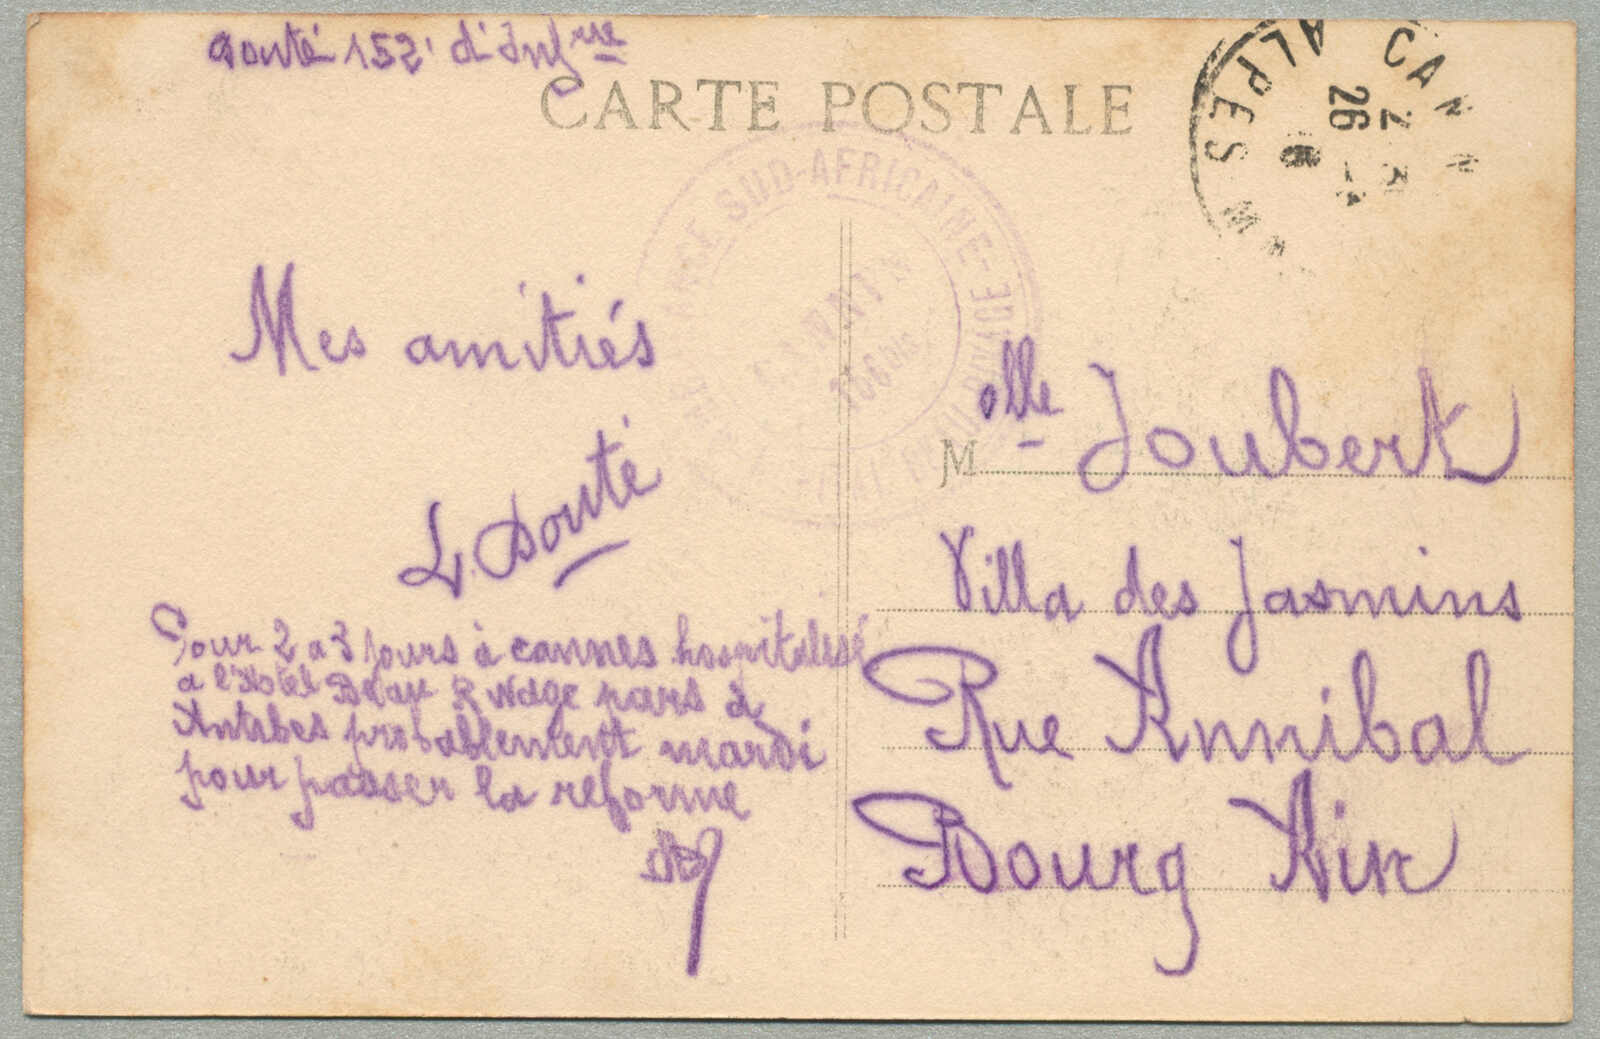 Douté 152e d'Infrie
CARTE POSTALE
CANNES
ALPES Mmes
26 - 4
SUD-AFRICAINE
CANNES
Mes amitiés
L. Douté
Pour 2 a 3 jours à cannes hospitalisé
a l'Hotel Beau Rivage pars à
Antibes probablement mardi
pour passer la reforme
Melle Joubert
Villa des Jasmins
Rue Annibal
Bourg Ain